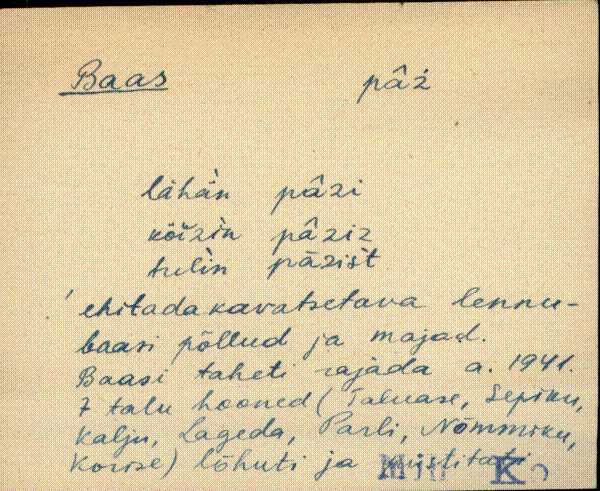 Baas pâź
lähä̀n pâzi
köìzìn pâziz
tulìn pāzist
ehitada kavatsetava lennu-
baasi põllud ja majad.
Baasi taheti rajada a. 1941.
7 talu hooned (Taluase, Sepiku,
Kalju, Lageda, Parli, Nõmmiku,
Korise) lõhuti ja